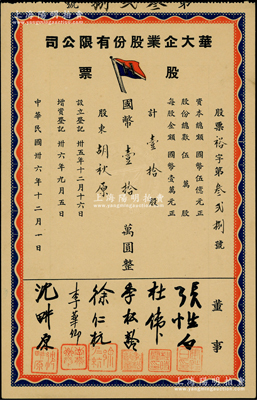 第叁貳捌號
華大企業股份有限公司
股票
股票裕字第叁貳捌號
資本總額國幣伍億元正
股份總數伍萬股
每股金額國幣壹萬元正
計壹拾股
國幣壹拾萬圓整
股東胡秋原
設立登記卅五年十二月十六日
增資登記卅六年九月五日
中華民國卅六年十二月一日
董事
張性白
杜偉
徐仁杭
李華卿
沈畊原
上海陽明拍賣